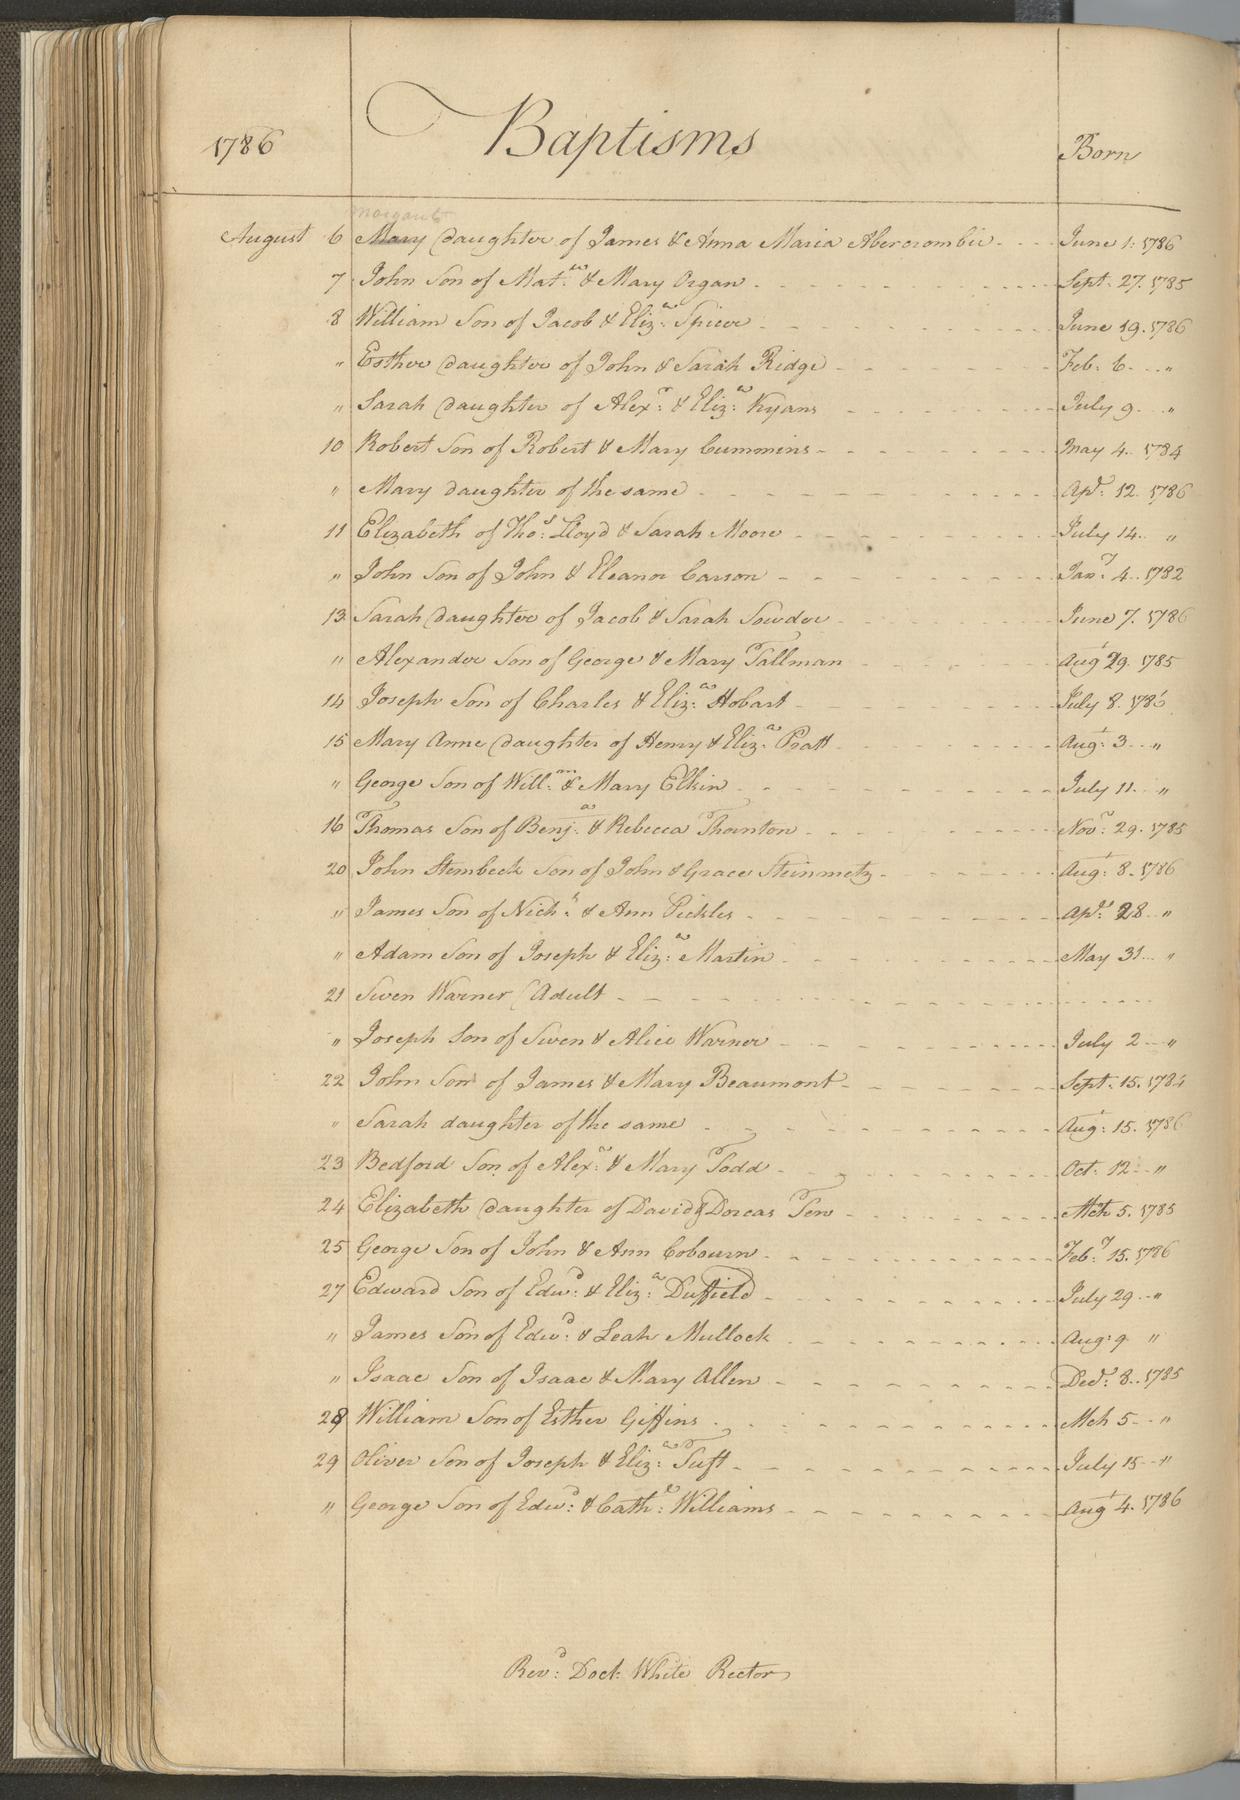 1786 Baptisms Born
Margaret
August 6 Mary Daughter of James & Anna Maria Abercrombie June 1. 1786
7 John Son of Mat.w & Mary Organ Sept. 27. 1785
8 William Son of Jacob & Eliz:a Spicer June 19. 1786
" Esther Daughter of John & Sarah Ridge Feb: 6 "
" Sarah Daughter of Alex:r & Eliz:a Kyans July 9 "
10 Robert Son of Robert & Mary Cummins May 4. 1784
" Mary daughter of the same Apl: 12. 1786
11 Elizabeth of Tho:s Lloyd & Sarah Moore July 14. "
" John Son of John & Eleanor Carson Jan:y 4. 1782
13 Sarah Daughter of Jacob & Sarah Sowder June 7. 1786
" Alexander Son of George & Mary Tallman Augt 29. 1785
14 Joseph Son of Charles & Eliz:a Hobart July 8. 1786
15 Mary Anne Daughter of Henry & Eliz:a Pratt Aug:t 3 "
" George Son of Will:m & Mary Elkin July 11. "
16 Thomas Son of Benj:a & Rebecca Thornton Nov:r 29. 1785
20 John Stembeck Son of John & Grace Steinmetz Aug:t 8. 1786
" James Son of Nich:s & Ann Pickles Apl: 28 "
" Adam Son of Joseph & Eliz:a Martin May 31 "
21 Swen Warner (Adult
" Joseph Son of Swen & Alice Warner July 2 "
22 John Son of James & Mary Beaumont Sept. 15. 1784
" Sarah daughter of the same Aug:t 15. 1786
23 Bedford Son of Alex:r & Mary Todd Oct. 12 "
24 Elizabeth Daughter of David & Dorcas Tew Mch 5. 1785
25 George Son of John & Ann Cobourn Feb:y 15. 1786
27 Edward Son of Edw:d & Eliz:a Duffield July 29 "
" James Son of Edw:d & Leah Mullock Aug: 9 "
" Isaac Son of Isaac & Mary Allen Decr: 8. 1785
28 William Son of Esther Giffins Mch 5 "
29 Oliver Son of Joseph & Eliz:a Tuft July 15 "
" George Son of Edw:d & Cath:e Williams Augt 4. 1786
Rev:d Doct: White Rector